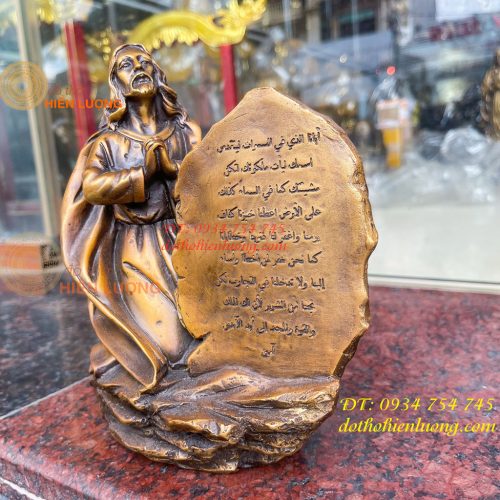 HIEN LUONG
أبانا الذي في السموات ليتقدس
اسمك ليأت ملكوتك لتكن
مشيئتك كما في السماء كذلك
على الأرض اعطنا خبزنا كفاف
يومنا واغفر لنا
كما نحن
الينا ولا تدخلنا في التجارب لكن
نجنا من الشرير لأن لك الملك
والقوة والمجد إلى أبد
آمين
ĐT: 0934 754 745
dothohienluong.com
HIEN LUONG
ĐT: 0934 754 745
dothohienluong.com